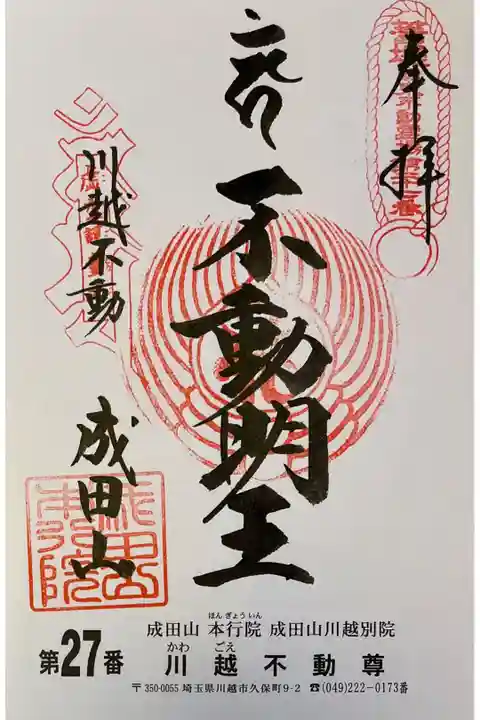 奉拝
不動明王
川越不動
成田山
成田山
本行院
ほんぎょういん
成田山 本行院 成田山川越別院
第27番
かわ ごえ
川越不動尊
〒350-0055 埼玉県川越市久保町9-2 ☎(049)222-0173番